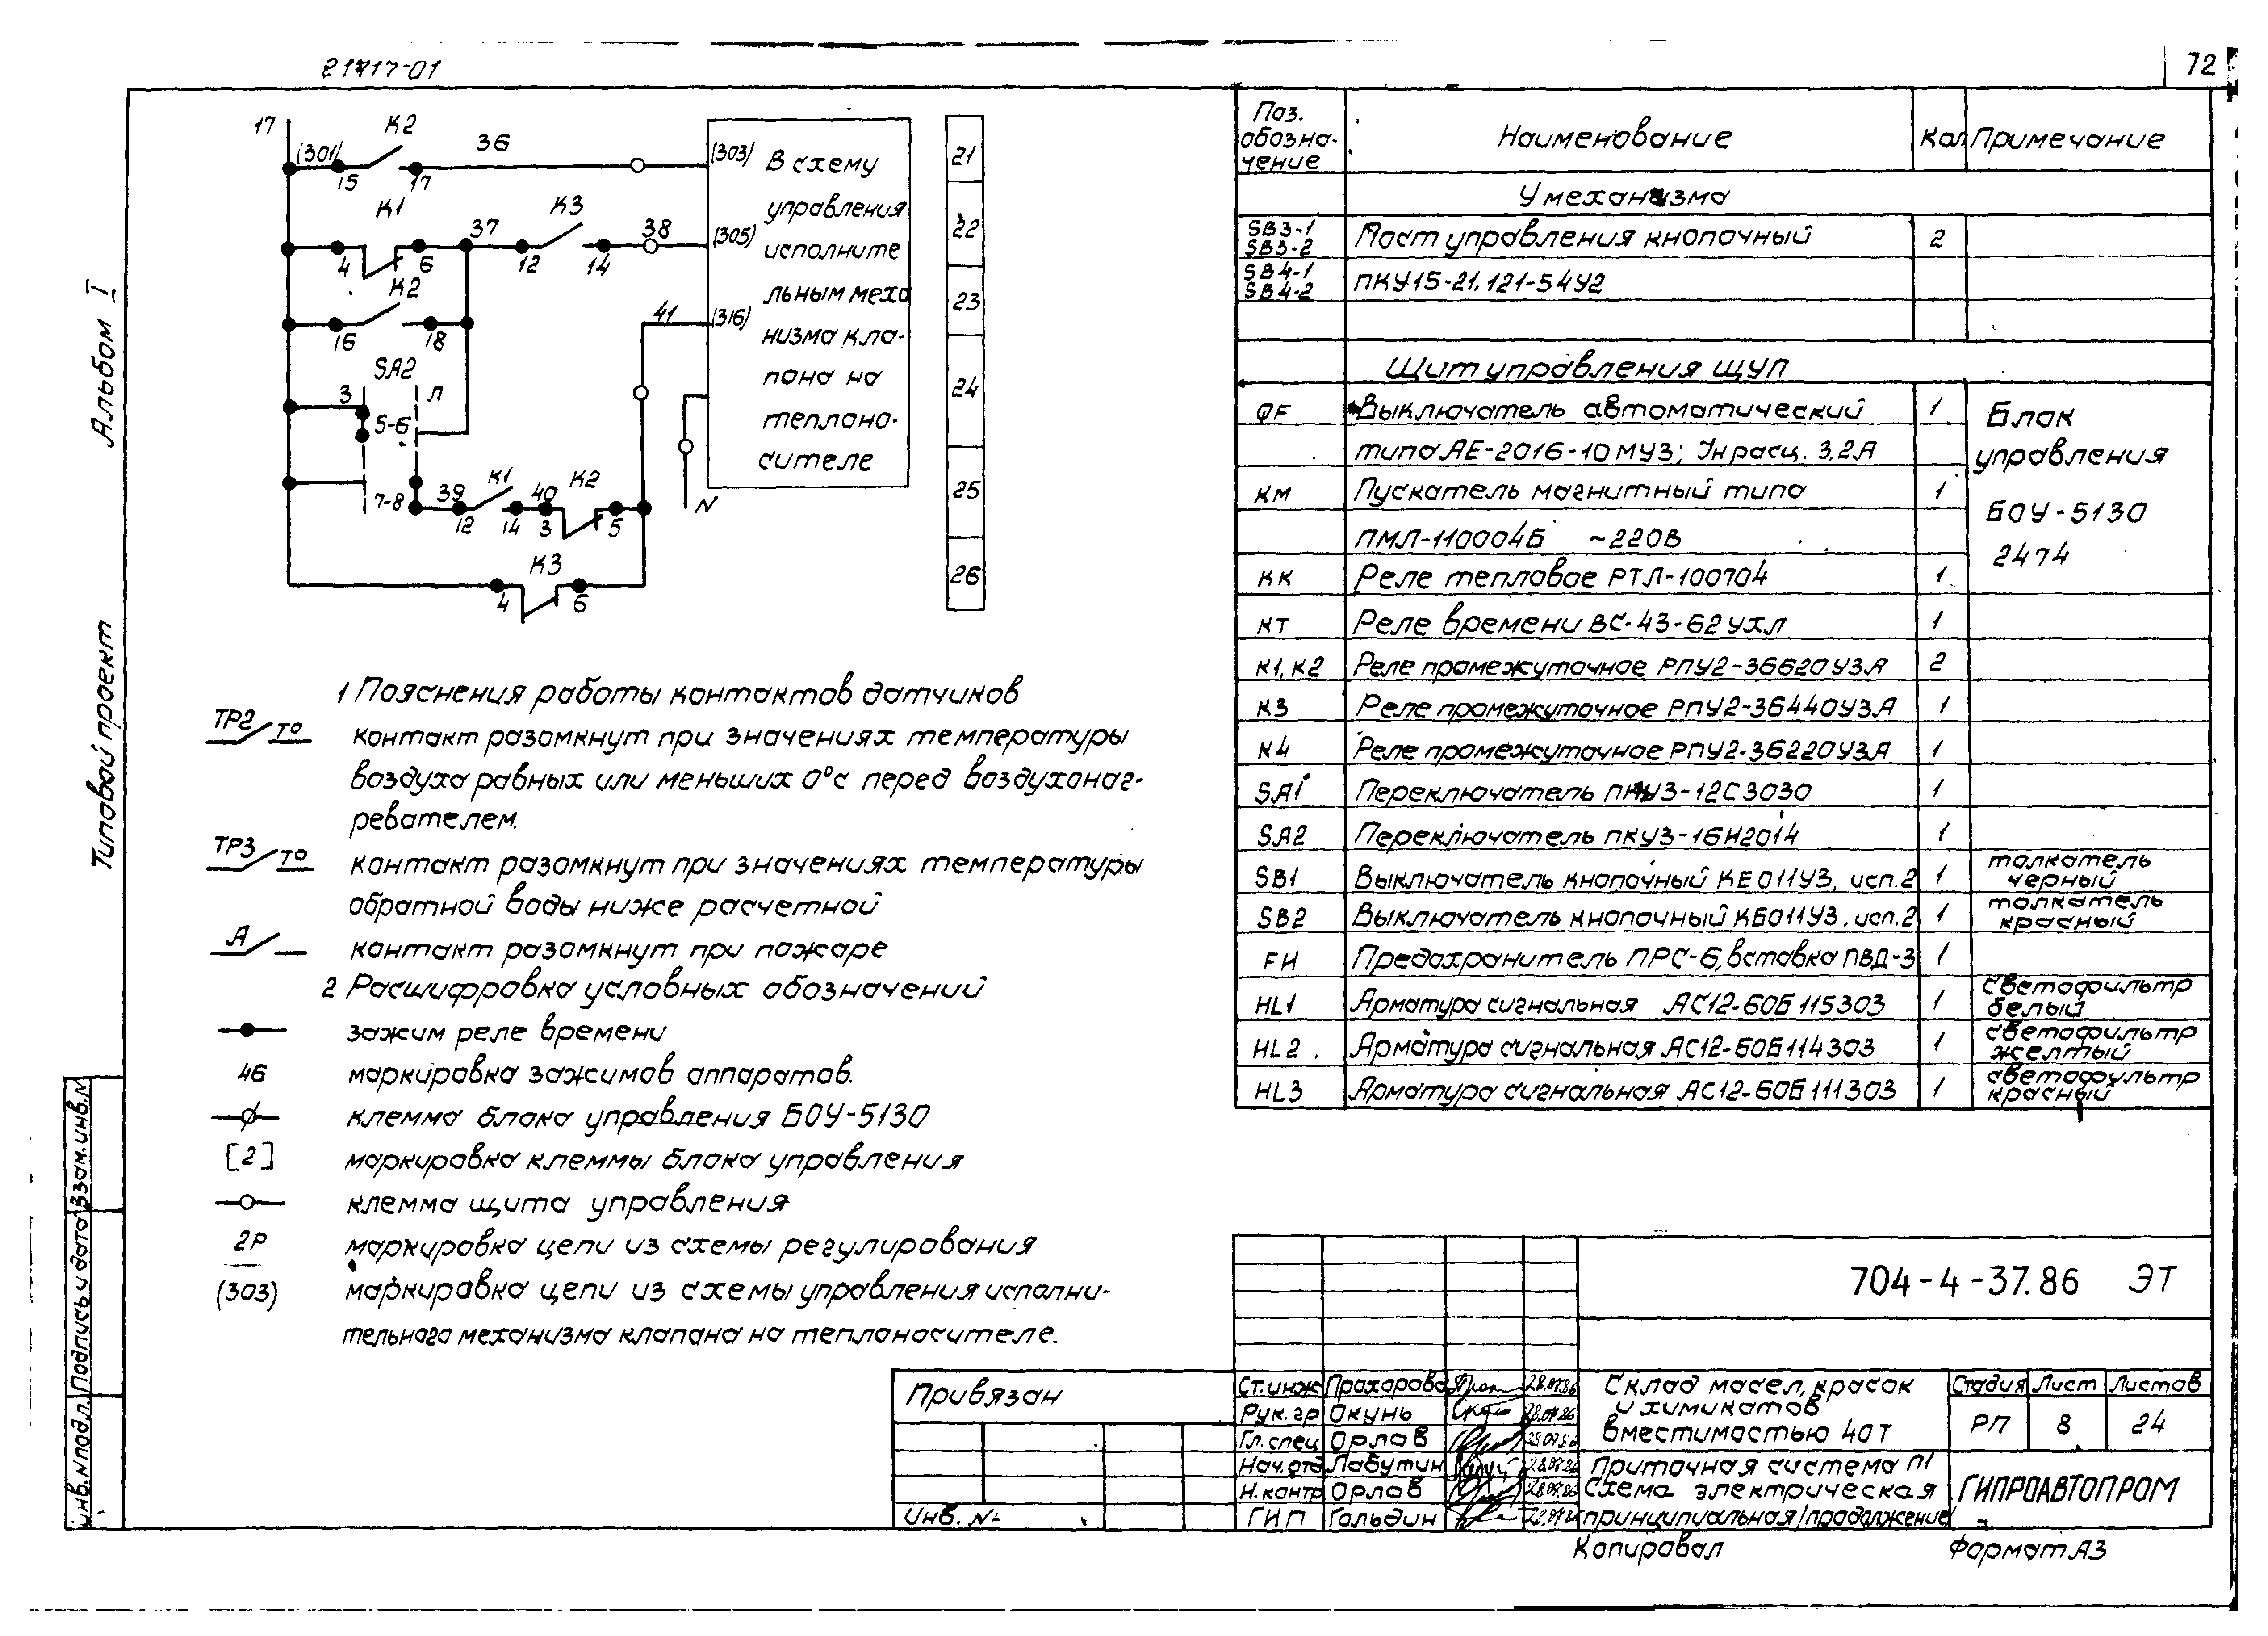 21717-01
72
Альбом I
Типовой проект
17
(301)
К2
36
15
17
К1
37
К3
38
4
6
12
14
К2
16
18
SA2
З
Л
5-6
7-8
39
К1
40
К2
12
14
3
5
К3
4
6
41
N
(303)
(305)
(316)
В схему
управления
исполните
льным меха
низма кла-
пана на
теплоно-
сителе
21
22
23
24
25
26
1 Пояснения работы контактов датчиков
ТР2 т°
контакт разомкнут при значениях температуры
воздуха равных или меньших 0°с перед воздухонаг-
ревателем.
ТР3 т°
контакт разомкнут при значениях температуры
обратной воды ниже расчетной
А контакт разомкнут при пожаре
2 Расшифровка условных обозначений
зажим реле времени
46 маркировка зажимов аппаратов.
клемма блока управления БОУ-5130
[2] маркировка клеммы блока управления
клемма щита управления
2Р маркировка цепи из схемы регулирования
(303) маркировка цепи из схемы управления исполни-
тельного механизма клапана на теплоносителе.
Поз. обозна-чение Наименование Кол. Примечание
У механизма
SB3-1 SB3-2 Пост управления кнопочный 2
SB4-1 SB4-2 ПКУ15-21.121-54У2
Щит управления ЩУП
QF Выключатель автоматический 1 Блок
типа АЕ-2016-10МУЗ; Iн расц. 3,2А управления
КМ Пускатель магнитный типа 1 БОУ-5130
ПМЛ-110004Б ~220В 2474
КК Реле тепловое РТЛ-100704 1
КТ Реле времени ВС-43-62УХЛ 1
К1, К2 Реле промежуточное РПУ2-36620У3А 2
К3 Реле промежуточное РПУ2-36440У3А 1
К4 Реле промежуточное РПУ2-36220У3А 1
SA1 Переключатель ПКУЗ-12С3030 1
SA2 Переключатель ПКУЗ-16И2014 1
SB1 Выключатель кнопочный КЕ011У3, исп.2 1 толкатель черный
SB2 Выключатель кнопочный КБ011У3, исп.2 1 толкатель красный
FИ Предохранитель ПРС-6, вставка ПВД-3 1
HL1 Арматура сигнальная АС12-60Б115303 1 светофильтр белый
HL2 Арматура сигнальная АС12-60Б114303 1 светофильтр желтый
HL3 Арматура сигнальная АС12-60Б111303 1 светофильтр красный
704-4-37.86 ЭТ
Ст. инж Прохорова 28.07.86
Рук. гр Окунь 28.07.86
Гл. спец Орлов 28.07.86
Нач. отд Лабутин 28.07.86
Н. контр Орлов 28.07.86
ГИП Гольдин 28.07.86
Склад масел, красок
и химикатов
вместимостью 40 т
Стадия Лист Листов
РП 8 24
Приточная система П1
Схема электрическая
принципиальная /продолжение/
ГИПРОАВТОПРОМ
Привязан
Инв. №
Копировал
Формат А3
Взам. инв. N
Подпись и дата
Инв. N подл.